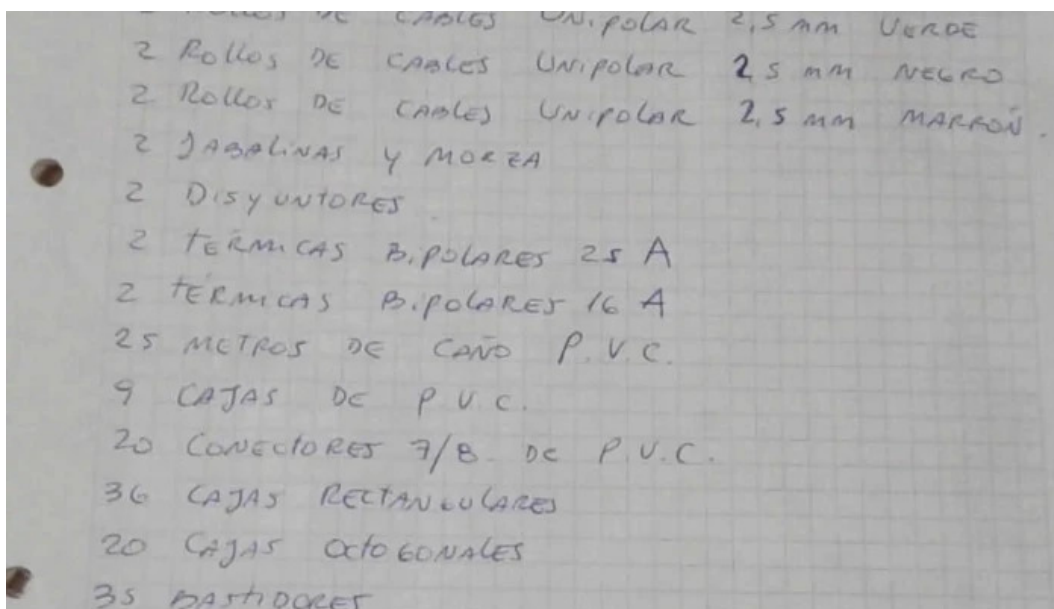 2 Rollos DE CABLES UNIPOLAR 2,5 mm VERDE
2 Rollos DE CABLES UNIPOLAR 2,5 mm NEGRO
2 Rollos DE CABLES UNIPOLAR 2,5 mm MARRÓN.
2 JABALINAS Y MORZA
2 DISYUNTORES
2 TÉRMICAS BIPOLARES 25 A
2 TÉRMICAS BIPOLARES 16 A
25 METROS DE CAÑO P.V.C.
9 CAJAS DE P.V.C.
20 CONECTORES 7/8 DE P.V.C.
36 CAJAS RECTANGULARES
20 CAJAS OCTOGONALES
35 BASTIDORES